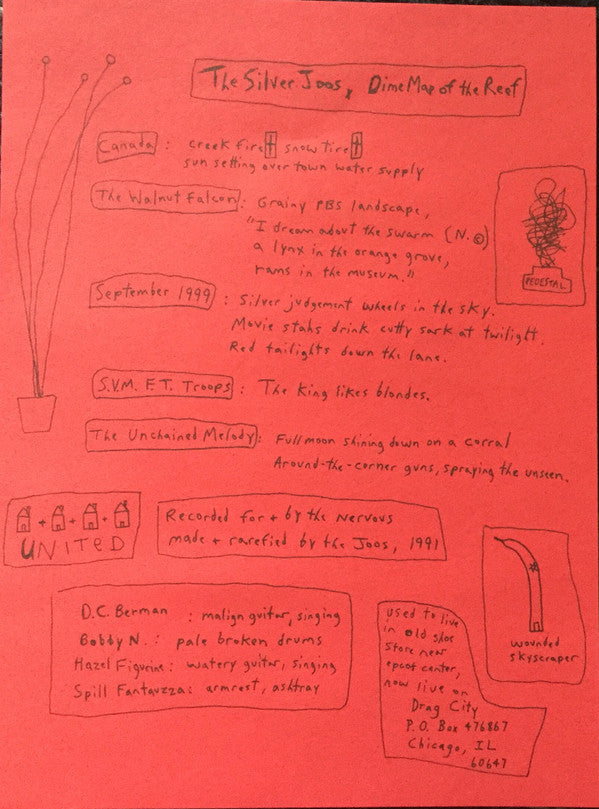 The Silver Joos, Dime Map of the Reef
Canada : creek fire snow tire
sun setting over town water supply
The Walnut Falcon : Grainy PBS landscape,
"I dream about the swarm (N.©)
a lynx in the orange grove,
rams in the museum."
PEDESTAL
September 1999 : Silver judgement wheels in the sky.
Movie stahs drink cutty sark at twilight.
Red tailights down the lane.
S.V.M. F.T. Troops : The King likes blondes.
The Unchained Melody : Full moon shining down on a corral
Around-the-corner guns, spraying the unseen.
+ + +
UNITED
Recorded for + by the Nervous
made + rarefied by the Joos, 1991
wounded
skyscraper
D.C. Berman : malign guitar, singing
Bobby N. : pale broken drums
Hazel Figurine : watery guitar, singing
Spill Fantauzza : armrest, ashtray
used to live
in old shoe
store new
epcot center,
now live on
Drag City
P.O. Box 476867
Chicago, IL
60647